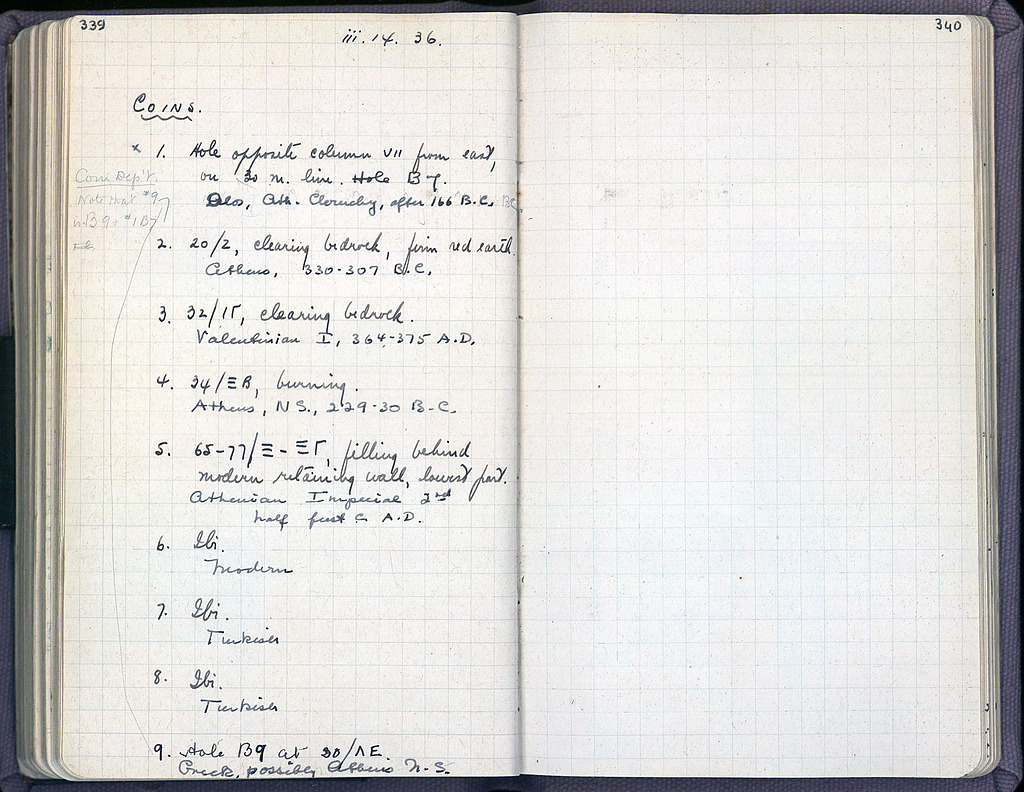 339
iii. 14. 36.
340
COINS.
x 1. Hole opposite column VII from east,
on 30 m. line. Hole B7.
Delos, Ath. Cleruchy, after 166 B.C.
Coin Dep't.
Note that #9
is B9 + #1 B7
2. 20/Z, clearing bedrock, firm red earth
Athens, 330-307 B.C.
3. 32/ΙΓ, clearing bedrock.
Valentinian I, 364-375 A.D.
4. 34/ΞB, burning.
Athens, N.S., 229-30 B.C.
5. 65-77/Ξ-ΞΓ, filling behind
modern retaining wall, lowest part.
Athenian Imperial 2nd
half first C A.D.
6. Ibi.
Modern
7. Ibi.
Turkish
8. Ibi.
Turkish
9. Hole B9 at 30/ΛE.
Greek, possibly Athens N.S.